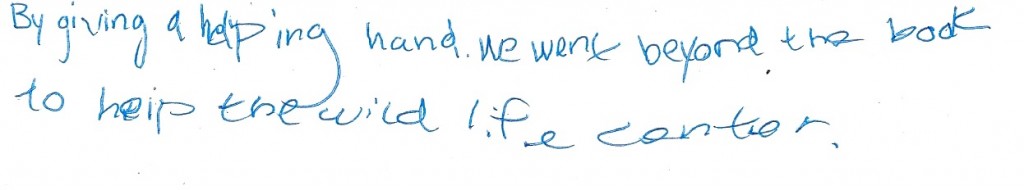 By giving a helping hand. We went beyond the book
to help the wild life center.